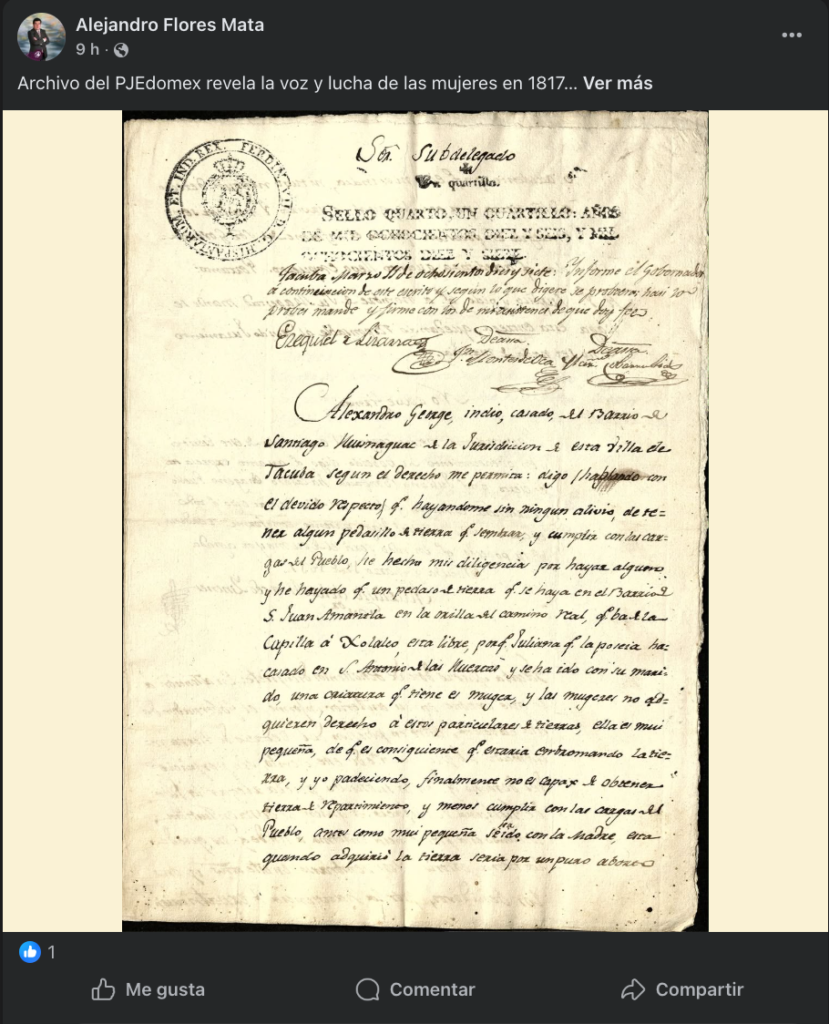 Alejandro Flores Mata
9 h ·
Archivo del PJEdomex revela la voz y lucha de las mujeres en 1817... Ver más
FERDIN. VII. D. G. HISPANIARUM. ET. IND. REX.
Sor. Subdelegado
Un quartillo.
SELLO QUARTO, UN QUARTILLO: AÑOS
DE MIL OCHOCIENTOS DIEZ Y SEIS, Y MIL
OCHOCIENTOS DIEZ Y SIETE.
Tacuba Marzo de ochosientos dies y siete. Informe el Gobernador
a continuacion de este escrito y segun lo que digere se probeera: haci lo
probei mande y firmo con los de mi asistencia de que doy fee
Ezequiel de Lizarra
Deassa.
Deassa.
Montes de Oca
Alexandro George, indio, casado, del Barrio de
Santiago de la Jurisdiccion de esta Villa de
Tacuba segun el derecho me permita: digo (hablando con
el devido respecto) q. hayandome sin ningun alivio, de te=
ner algun pedasillo de tierra q. sembrar, y cumplir con las car=
gas del Pueblo, he hecho mis diligencia por hayar alguno
y he hayado q. un pedaso de tierra q. se haya en el Barrio de
S. Juan Amantla en la orilla del camino real, q. ba de la
Capilla á Xolalco, esta libre, porq. Juliana q. la poseia ha=
casado en S. Antonio de las Huertas y se ha ido con su mari=
do, una criatura q. tiene es muger, y las mugeres no ad=
quieren derecho á estos particulares de tierras, ella es mui
pequeña, de q. es consiguiente q. estaria embromando la tie=
rra, y yo padeciendo, finalmente no es capax de obtener
tierra de repartimiento, y menos cumplir con las cargas del
Pueblo, antes como mui pequeña se ido con la Madre, esta
quando adquirió la tierra seria por un puro
1
Me gusta
Comentar
Compartir